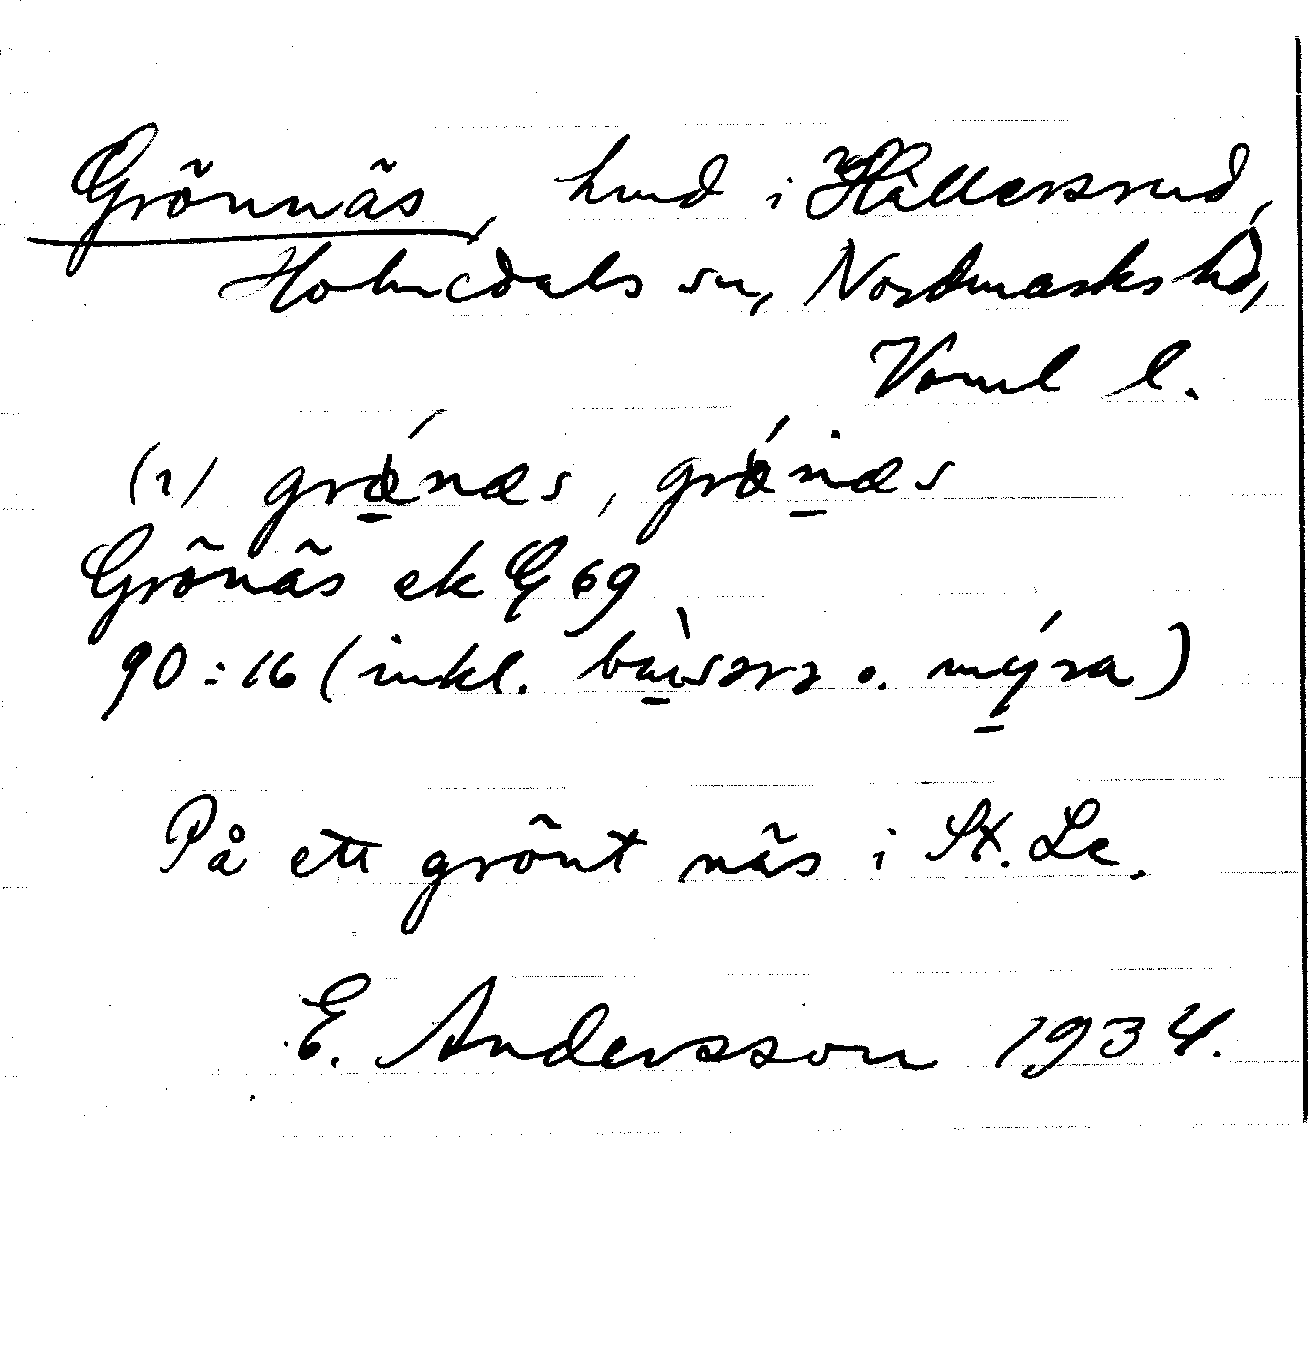 Grönnäs, hmd i Hällersrud,
Holmedals sn, Nordmarks hd,
Värml l.
(1) grǿnæs, grǿnæs
Grönäs ek G 69
90:16 (inkl. o. mýra)
På ett grönt näs i St. Le.
E. Andersson 1934.